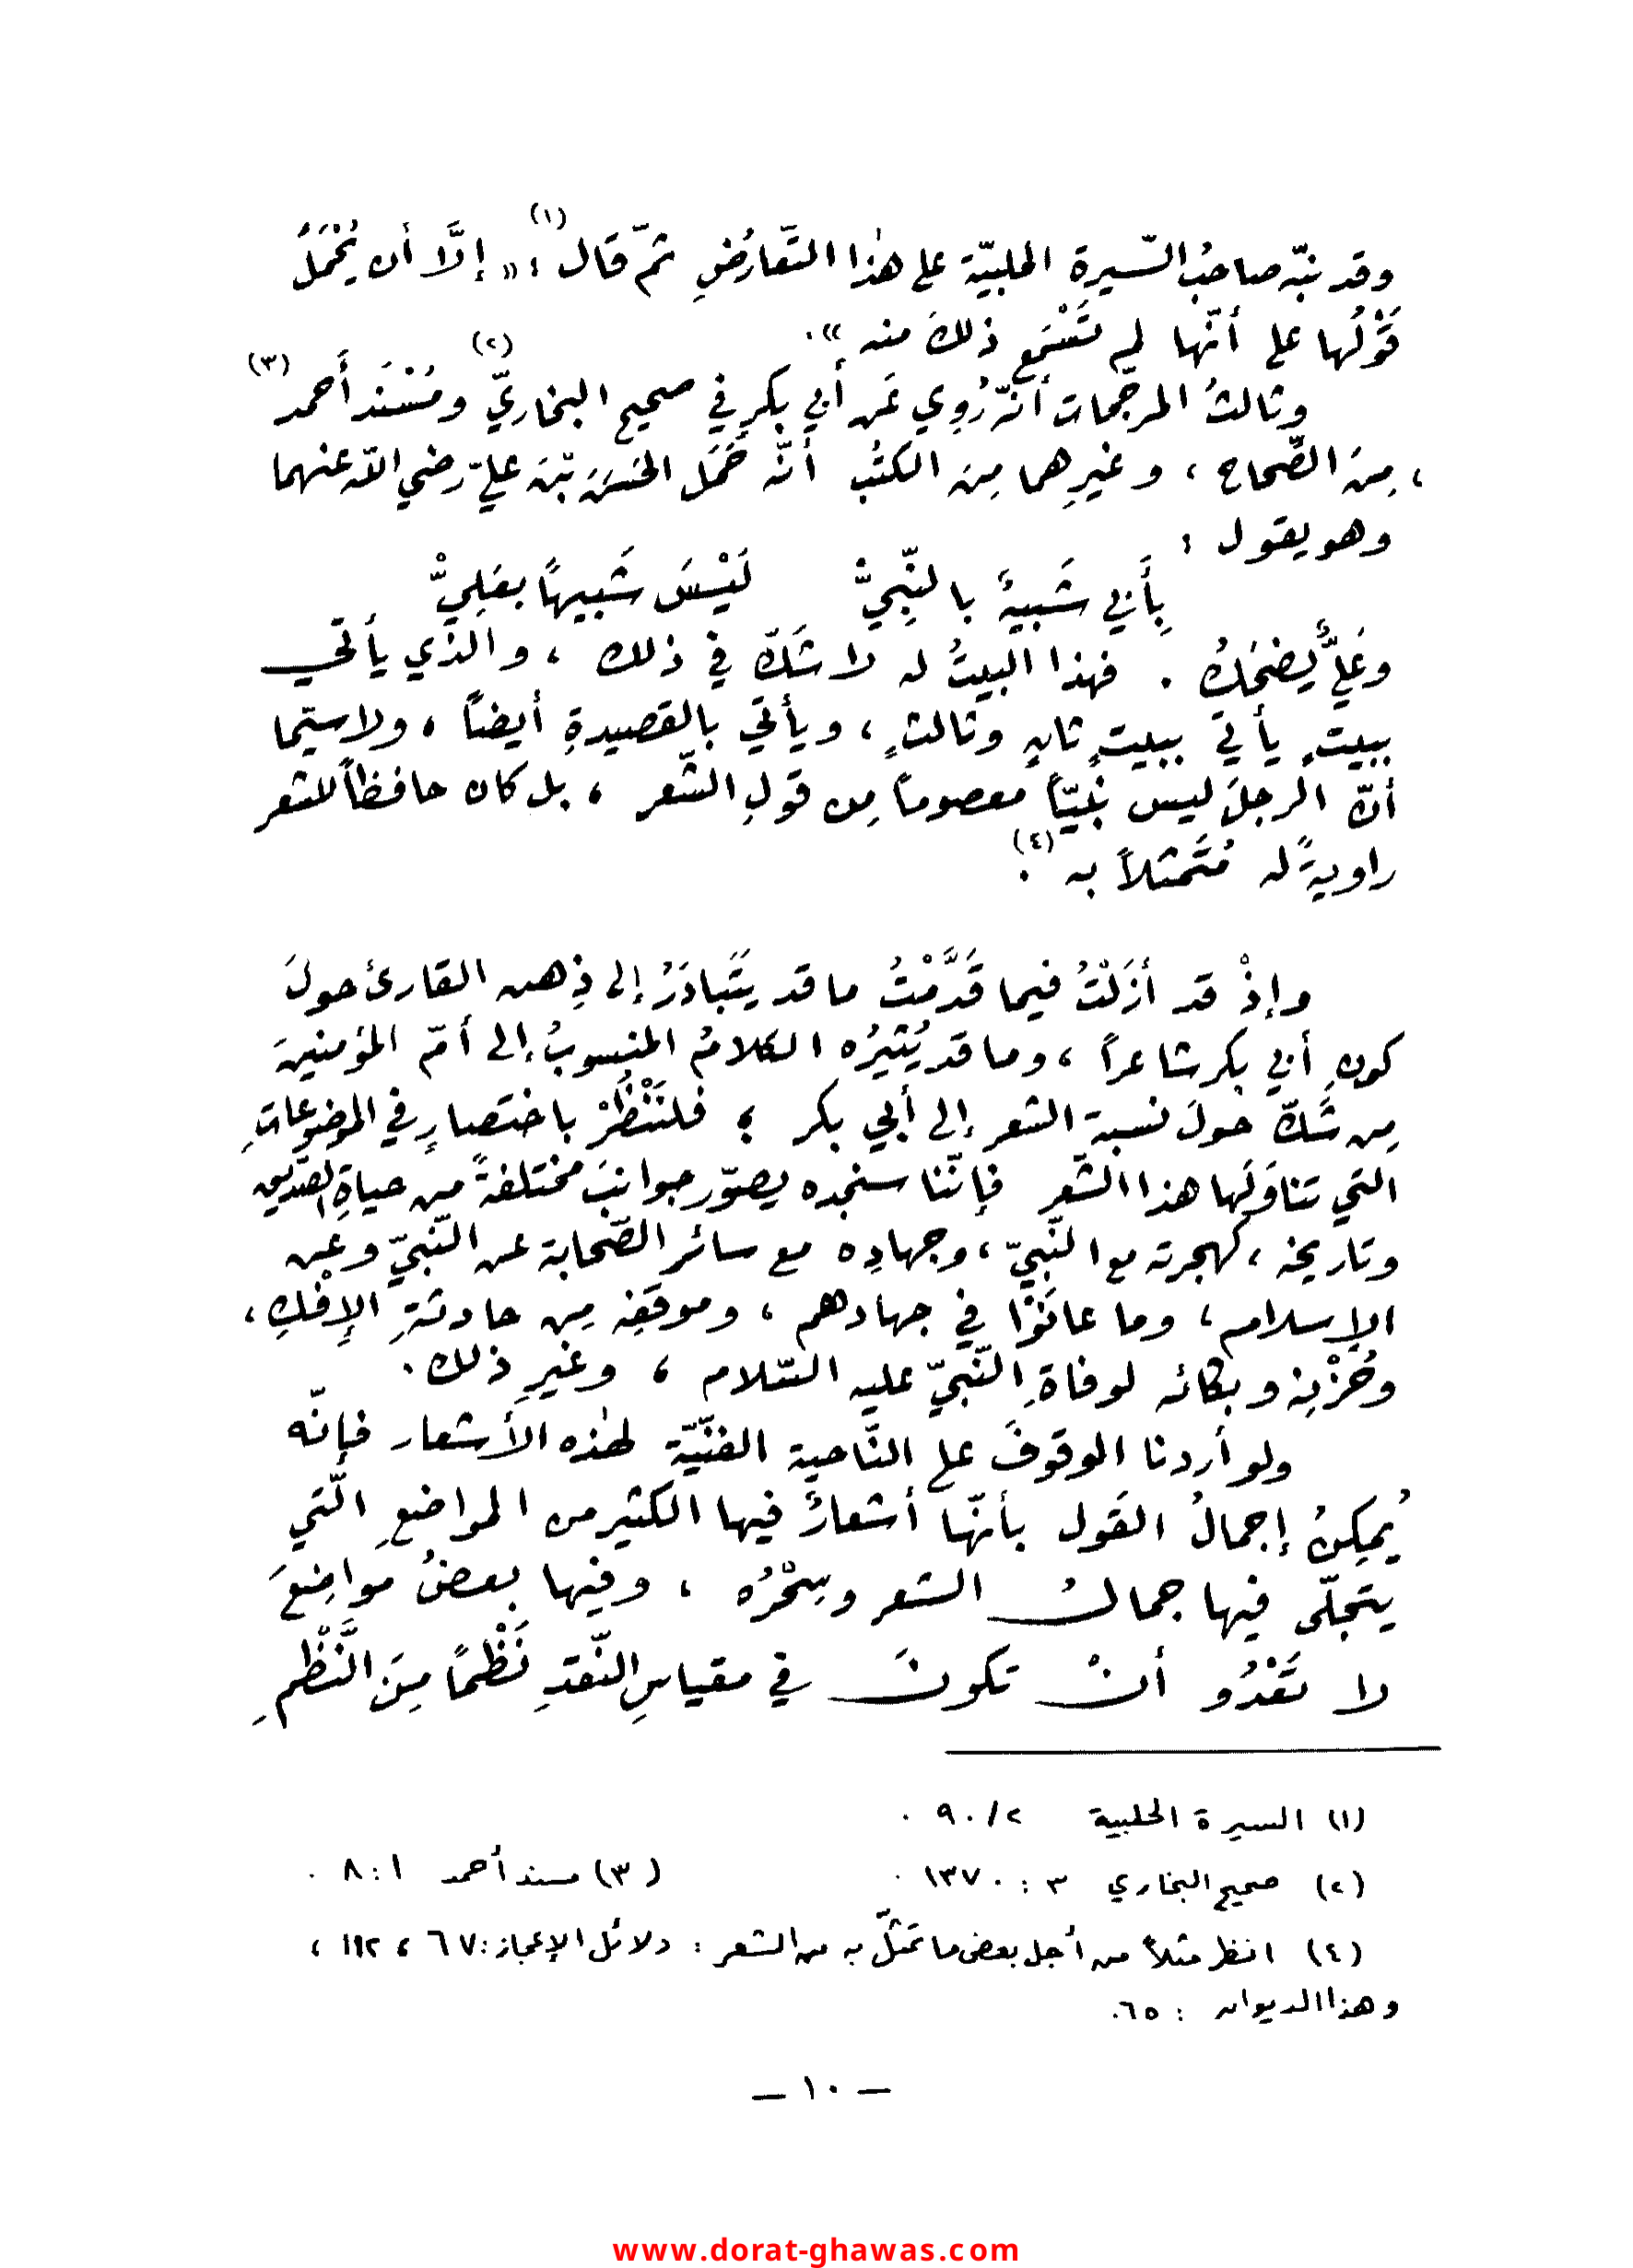 وقد نبّه صاحبُ السّيرة الحلبيّة على هٰذا التَّعارُضِ ثمّ قال (١): « إلَّا أن يُحْمَلَ
قَوْلُها على أنّها لم تَسْمَع ذلكَ منه ».
وثالثُ المرجّحات أنّه رُوِي عَن أبي بكرٍ في صحيح البخاريّ (٢) ومُسْنَد أَحمد (٣)
، مِنَ الصِّحاح ، وغيرِهما مِنَ الكتُب أنّه حَمَل الحَسَنَ بْنَ عليّ رضي الله عنهما
وهو يقول :
بِأَبي شَبيهٌ بالنَّبِيّْ لَيْسَ شَبيهًا بعَلِيّْ
وعَليٌّ يضحَكُ . فهذا البيتُ له لا شَكّ في ذلك ، والذي يأتي
ببيتٍ يأتي ببيتٍ ثانٍ وثالثٍ ، ويأتي بالقصيدةِ أيضاً ، ولا سيّما
أنّ الرجلَ ليس نبيّاً معصوماً مِن قولِ الشّعر ، بل كان حافظاً للشعر
راويةً له مُتَمَثّلاً به (٤) .
وإذْ قد أزَلْتُ فيما قَدَّمْتُ ما قد يَتَبادَرُ إلى ذِهن القارئ حولَ
كونِ أبي بكر شاعراً ، وما قد يُثيرُه الكلامُ المنسوبُ إلى أمّ المؤمنينَ
مِن شَكّ حولَ نسبةِ الشعر إلى أبي بكر ؛ فلنَنْظُرْ باختصارٍ في الموضوعاتِ
التي تناوَلَها هذا الشّعر فإنّنا سنجده يصوّر جوانبَ مختلفةً من حياةِ الصّدّيق
وتاريخه ، كهجرته مع النّبيّ ، وجهادِه مع سائر الصّحابة عن النّبيّ وعن
الإسلام ، وما عانَوْا في جهادهم ، وموقفِه مِن حادثةِ الإفْكِ ،
وحُزْنِه وبكائه لوفاةِ النّبيّ عليه السّلام ، وغيرِ ذلك .
ولو أردنا الوقوفَ على النّاحية الفنّيّة لهٰذه الأشعار فإنّه
يُمكِنُ إجمالُ القول بأنّها أشعارٌ فيها الكثير من المواضعِ الّتي
يتجلّى فيها جمالُ الشعر وسِحْرُه ، وفيها بعضُ مواضِعَ
لا تَعْدُو أنْ تكونَ في مقياسِ النّقدِ نَظْمًا مِنَ النَّظْمِ
(١) السيرة الحلبية ٢/ ٩٠ .
(٢) صحيح البخاري ٣ : ١٣٧٠ . (٣) مسند أحمد ١ : ٨ .
(٤) انظر مثلاً من أجل بعض ما تمثّل به من الشعر : دلائل الإعجاز : ٦٧ ، ١١٢ ،
وهذا الديوان : ٦٥ .
— ١٠ —
www.dorat-ghawas.com